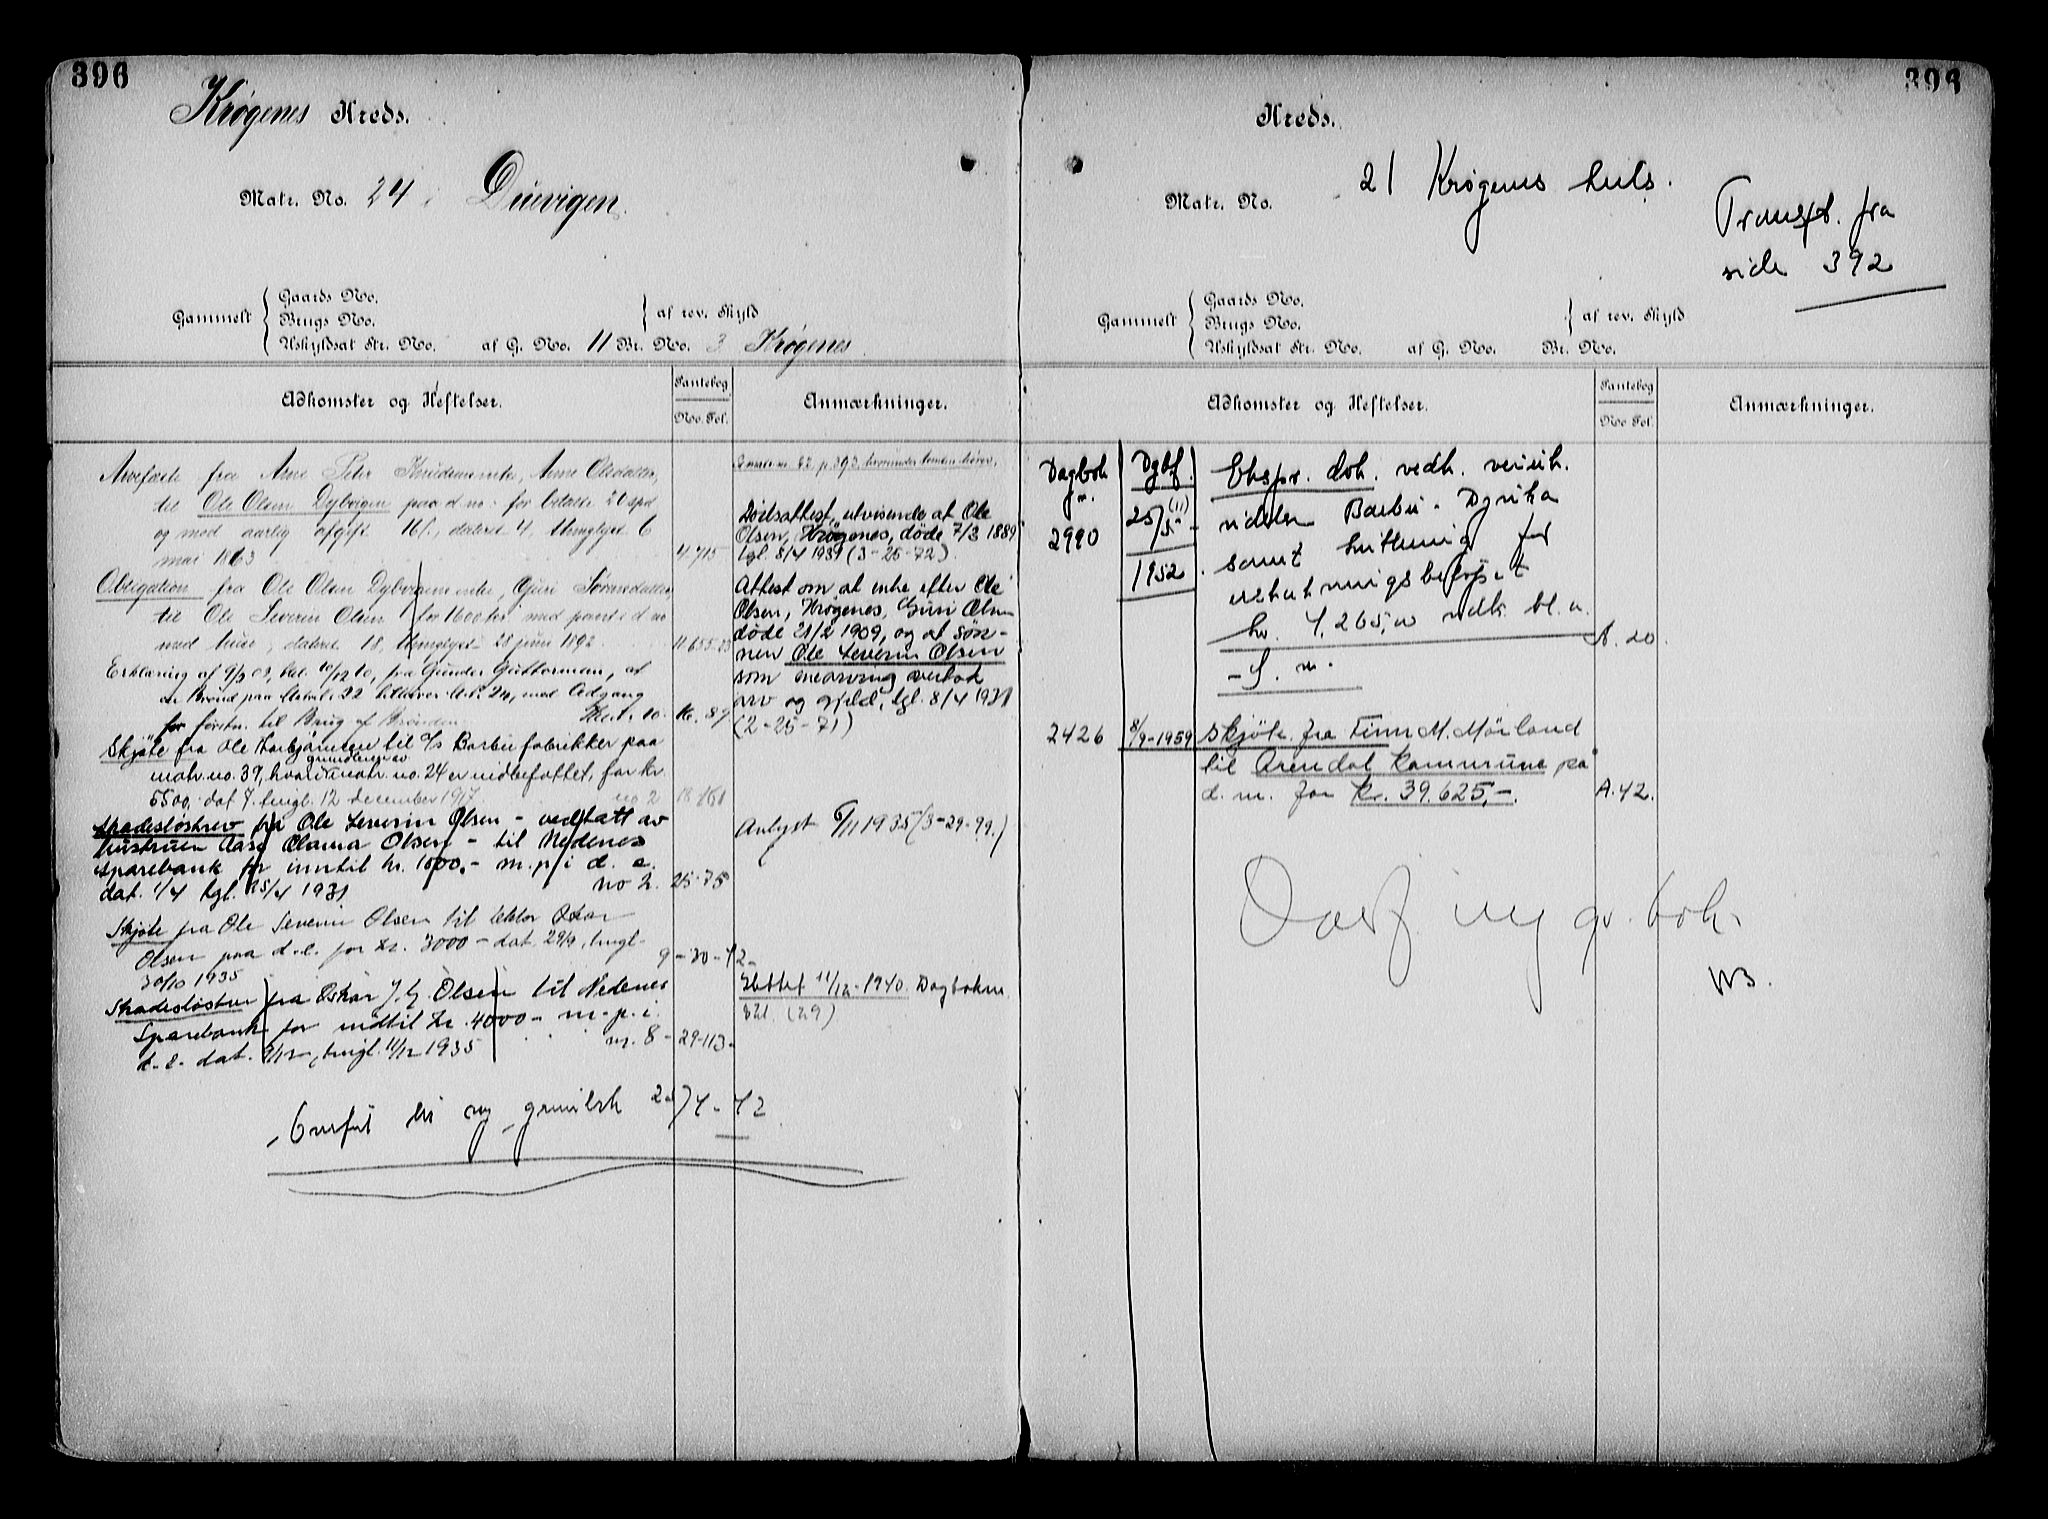 396
Krøgenes Kreds.
Matr. No. 24 Duevigen.
Gammelt { Gaards No.
Brugs No. } af rev. Skyld
Uskyldsat Str. No. af G. No. 11 Br. No. 3 Krøgenes
Adkomster og Heftelser.
Pantebog
No. Fol.
Anmærkninger.
Arvefæste fra Arne Peter enke, Anne Olsdatter,
til Ole Olsen Dybvigen paa d. no. for betalte 20 spd
og mod aarlig afgift dateret 4, thinglyst 6
mai 1863 4 715
Obligation fra Ole Olsen Dybvigens enke, Guri
til Ole Severin Olsen for 1600 kr med pant i d no
med huse, dateret 18, thinglyst 28 juni 1892. 11 655
Erklæring af 9/9 09, tgl. 10/12 10, fra Gunder Guttormsen, at
en Brønd paa Matr. 22 tilhører M. 24, med Adgang
for førstn. til Brug af Brønden. 10. 89
Skjøte fra Ole Torbjørnsen til a/s Barbu fabrikker paa
matr. no. 39, hvori grunden av matr. no. 24 er indbefattet, for kr
5500, dat 7. tingl. 12 december 1917. no 2 18 161
Skadesløsbrev fra Ole Severin Olsen - vedtatt av
hustruen Aase Olama Olsen - til Nedenes
sparebank for inntil kr. 1000,- m. p. i d. e.
dat. 1/4 tgl. 15/4 1931 no 2. 25-75
Skjøte fra Ole Severin Olsen til lektor Oskar
Olsen paa d. e. for kr. 3000 - dat. 29/9, tingl.
30/10 1935 9 - 30 - 42 -
Skadesløsbrev fra Oskar J. G. Olsen til Nedenes
Sparebank for indtil kr. 4000 - m. p. i.
d. e. dat. 9/12, tingl. 11/12 1935 nr. 8 - 29-113 -
Overført til ny grunnbok 4-42
Dødsattest, utvisende at Ole
Olsen, Krøgenes, døde 7/3 1889
tgl. 8/4 1931 (3-25-72).
Attest om at enke efter Ole
Olsen, Krøgenes, Guri Olsen
døde 21/2 1909, og at søn-
nen Ole Severin Olsen
som enearving overtok
arv og gjeld, tgl. 8/4 1931
(2-25-71)
Avlyst 6/11 1935 (3-29-99.)
Slettet 11/12-1940. Dagboknr.
321. (29)
396
Kreds.
Matr. No. 21 Krøgenes
Transp. fra
side 392
Gammelt { Gaards No.
Brugs No. } af rev. Skyld
Uskyldsat Str. No. af G. No. Br. No.
Adkomster og Heftelser.
Pantebog
No. Fol.
Anmærkninger.
Dagbok
nr.
2990
Dgbf.
25/5 - (11)
1952
Ekspr. dok. vedk.
Barbu -
samt for
erstatningsbeløpet
kr. 4,265,00 vedk. bl. a.
- d. m. - A. 20
2426 8/9-1959 Skjøte fra Finn M. Mørland
til Arendal kommune på
d. m. for kr. 39.625,-. A. 42.
Overf. ny gr. bok.